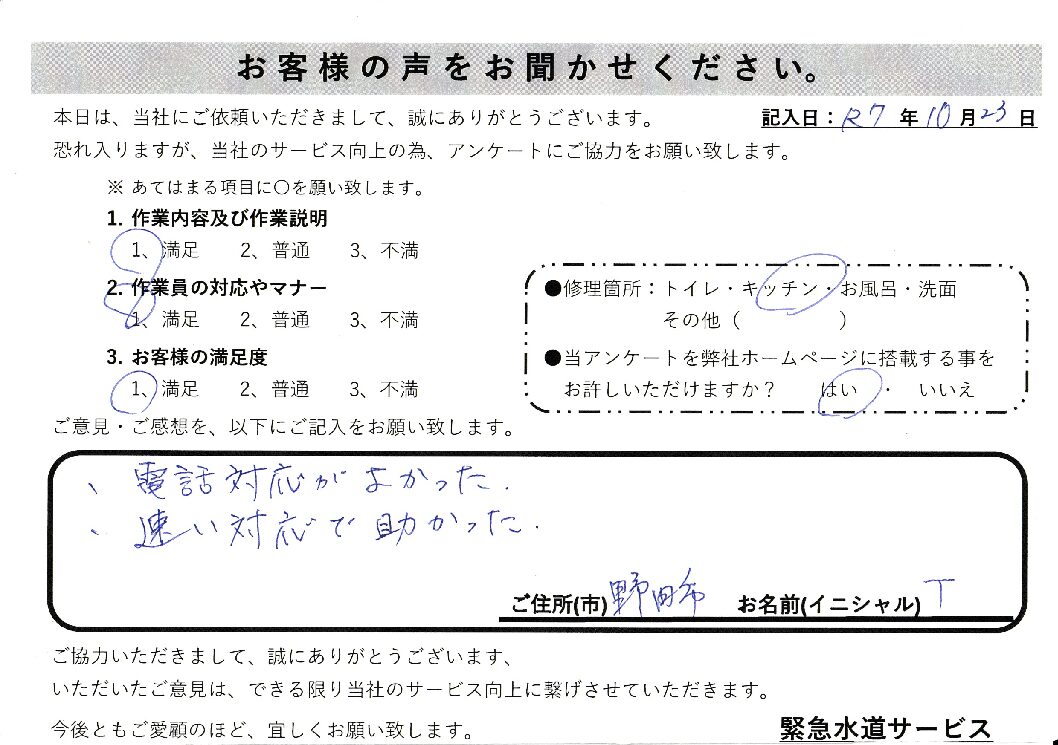 お客様の声をお聞かせください。
本日は、当社にご依頼いただきまして、誠にありがとうございます。
記入日：R7年10月23日
恐れ入りますが、当社のサービス向上の為、アンケートにご協力をお願い致します。
※ あてはまる項目に〇を願い致します。
1. 作業内容及び作業説明
1、満足 2、普通 3、不満
2. 作業員の対応やマナー
1、満足 2、普通 3、不満
3. お客様の満足度
1、満足 2、普通 3、不満
●修理箇所：トイレ・キッチン・お風呂・洗面
その他（ ）
●当アンケートを弊社ホームページに搭載する事を
お許しいただけますか？ はい ・ いいえ
ご意見・ご感想を、以下にご記入をお願い致します。
、電話対応がよかった.
、速い対応で助かった.
ご住所(市)野田市 お名前(イニシャル) T
ご協力いただきまして、誠にありがとうございます、
いただいたご意見は、できる限り当社のサービス向上に繋げさせていただきます。
今後ともご愛顧のほど、宜しくお願い致します。
緊急水道サービス